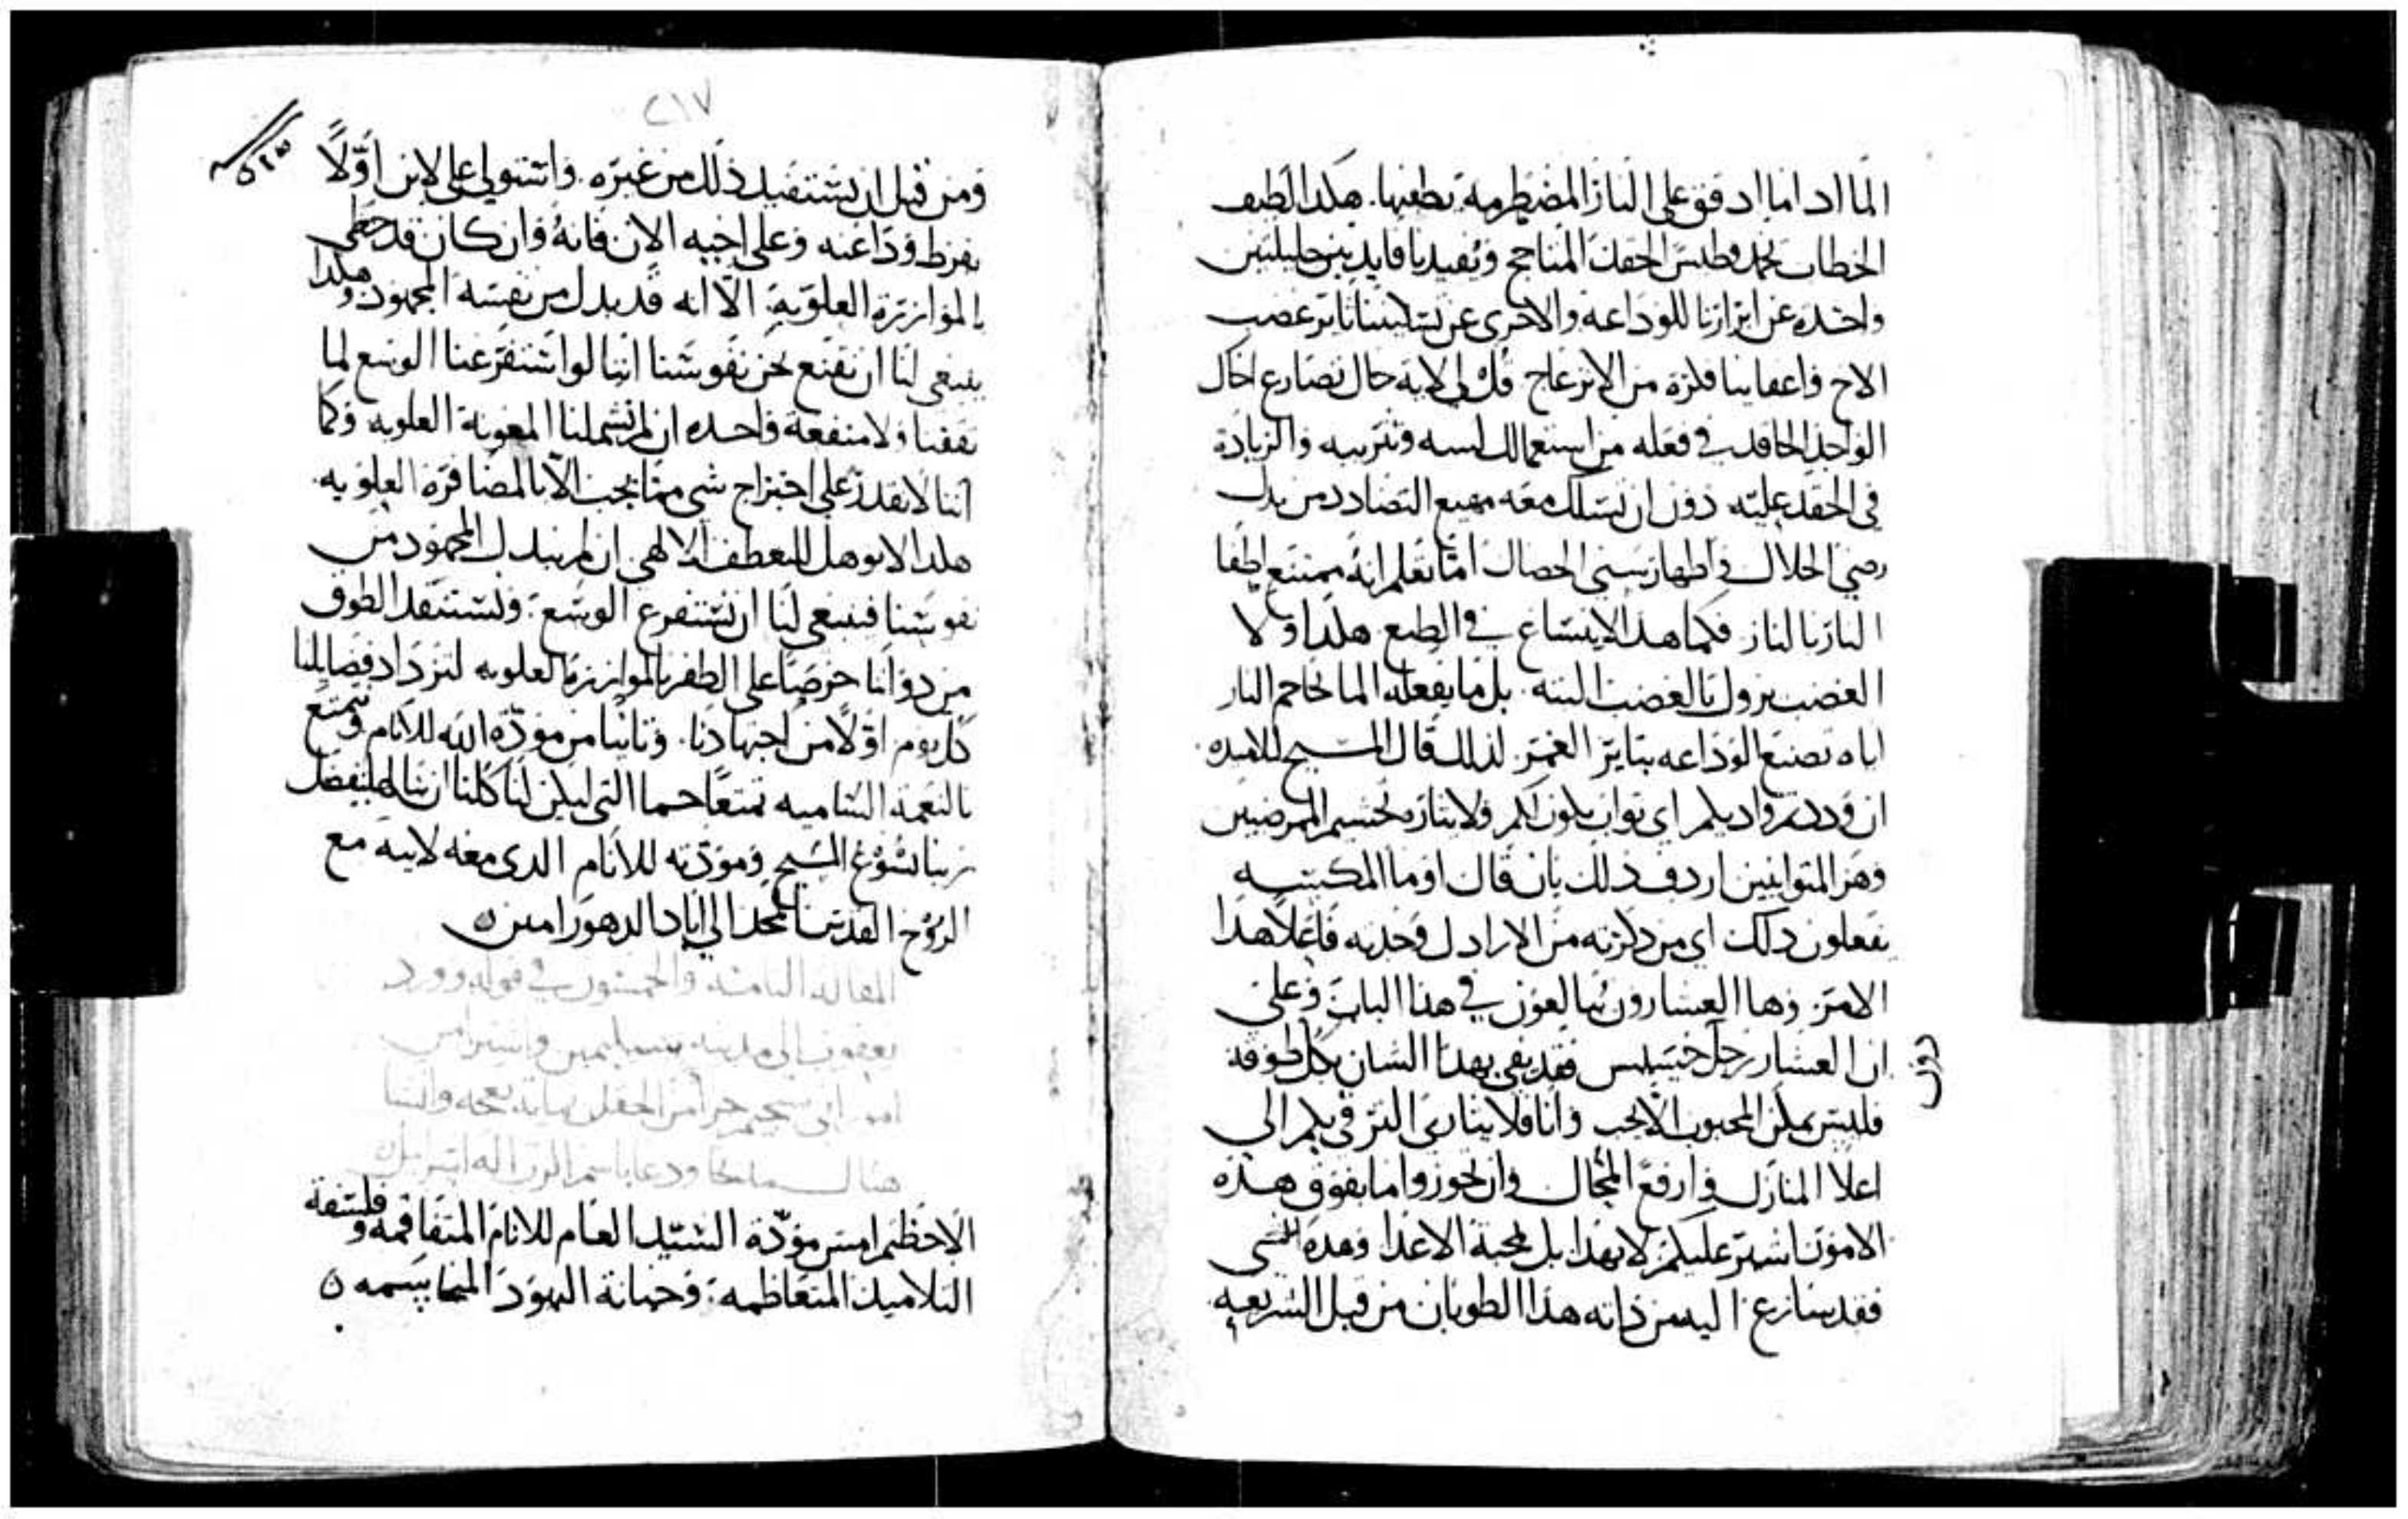 الما اد اما ادفق على النار المضطرمه يطفيها. هكدا لطيف
الخطاب يخمد وطيس الحقد المتاجج ويفيدنا فايدتين جليلتين
واحده عن ابرازنا للوداعه والاخرى عن تسكيننا ثاير غضب
الاخ واعفاينا فكره من الانزعاج قل لي لاية حال تصارع اخاك
الواجد الحاقد في فعله من استعمالك لسبه وتثريبه والزيادة
في الحقد عليه دون ان تسلك معه مهيع التضادد من بدل
رضي الخلال واظهار سني الخصال اما تعلم انه ممتنع اطفا
النار بالنار فكما هدا لا ينساغ في الطبع هكدا ولا
الغضب يزول بالغضب البته. بل ما يفعله الما بجاحم النار
اياه تصنع الوداعه بثاير الغمر لدلك قال المسيح لتلاميده
ان وددتم وادديكم اي ثواب يكون لكم ولايثاره تحشيم الممرضين
وهم المتوانيين اردف دلك بان قال اوما المكسة
يفعلون دلك اي من دكرته من الارادل وجدته فاعلا هدا
الامر وها العشارون يبالغون في هذا الباب وعلى
ان العشار رجل خسيس فقد يفي بهدا الشان بكل طوقه
دون
فليس يمكن المحبوب الا يحب وانا فلايثاري الترقي بكم الي
اعلا المنازل وارفع المحال وان تحوزوا ما يفوق هده
الامور اشير عليكم لا بهدا بل بمحبة الاعدا وهدا
فقد سارع اليه من داته هذا الطوبان من قبل الشريعه
٢١٧
ومن قبل ان يستفيد ذلك من غيره. واستولي على لابن اولا
بفرط وداعته وعلى اخيه الان فانه وان كان قد حظي
بالموازرة العلوية. الا انه قد بدل من نفسه المجهود وهكدا
ينبغي لنا ان نقنع نحن نفوسنا اننا لو استفرغنا الوسع لما
نفعنا ولا منفعة واحده ان لم تشملنا المعونة العلويه وكما
اننا لا نقدر على اجتراح شي مما يجب الا بالمضافرة العلويه
هكدا لا نوهل للتعطف الالهي ان لم نبدل المجهود من
نفوسنا فينبغي لنا ان نستفرغ الوسع. ونستنفد الطوق
من دواتنا حرصا على الظفر بالموازرة العلويه لتزداد فضايلنا
كل يوم اولا من اجتهادنا. وثانيا من مودة الله للانام ونتمتع
بالنعمة الساميه تمتعا جما التي ليكن لنا كلنا ان ننالها بتفضل
ربنا يسوع المسيح ومودته للانام الدي معه لابيه مع
الروح القدس المجد الي اباد الدهور امين
المقاله الثامنه والخمسون في قوله وورد
يعقوب الى مدينه
حمور ابي سجيم جزا من الحقل بمايه نعجه وانشا
هناك مدبحا ودعا باسم الرب اله اسراييل
الاحظتم امس مودة السيد العام للانام المتفاقمه وفلسفة
التلاميذ المتعاظمه. وخيانة اليهود